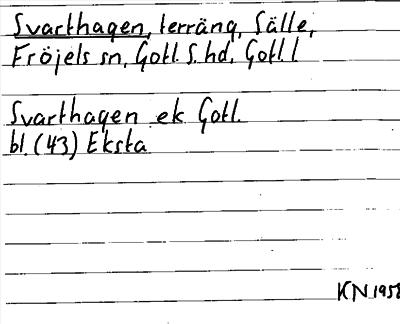 Svarthagen, terräng, Sälle,
Fröjels sn, Gotl. S. hd, Gotl. l
Svarthagen ek. Gotl.
bl. (43) Eksta
KN 1958